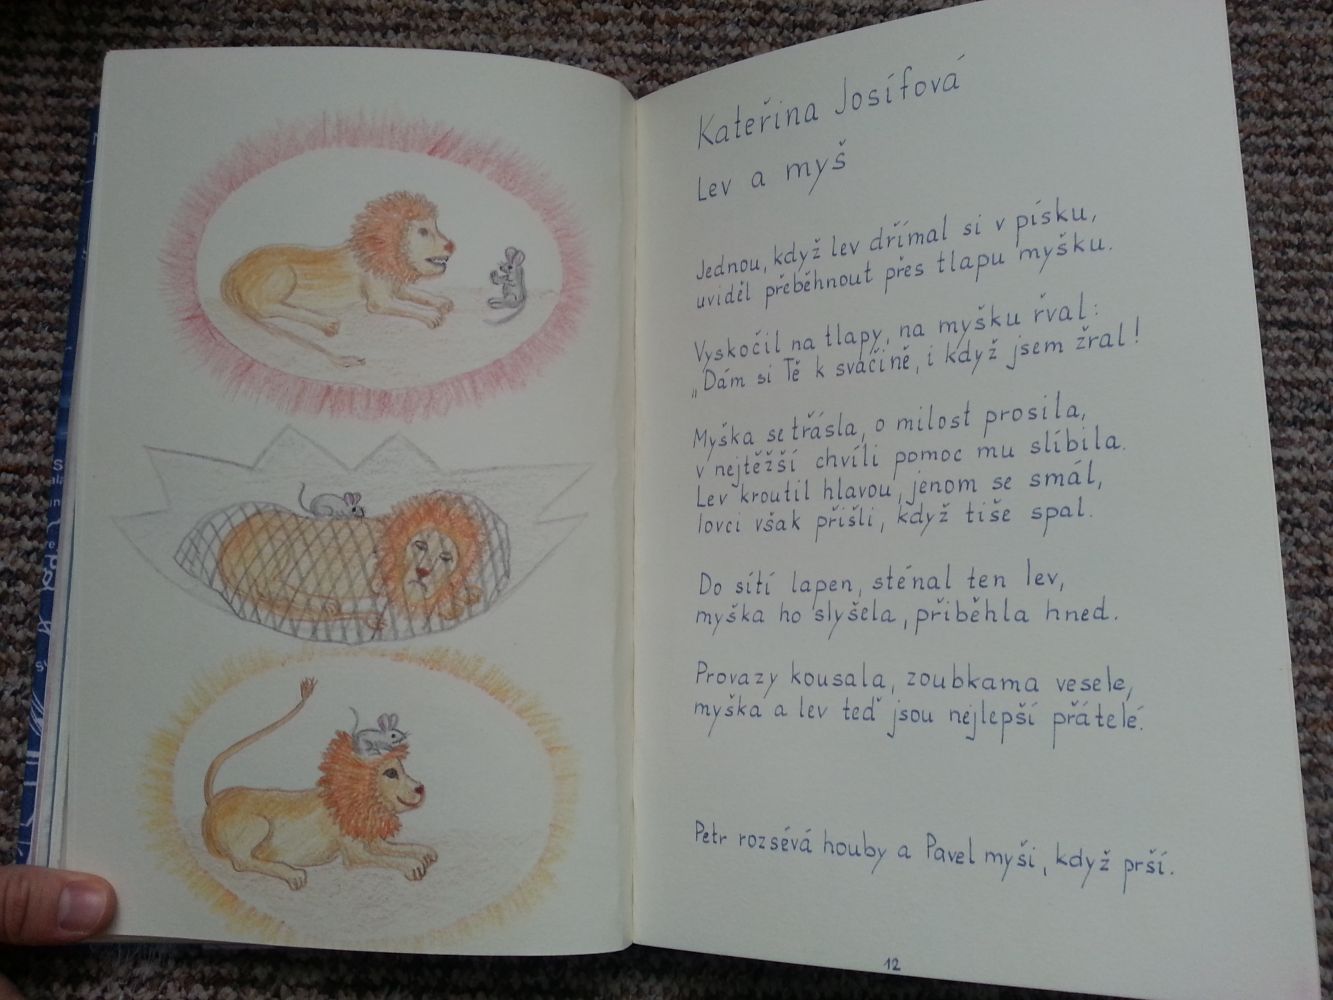 Kateřina Josífová
Lev a myš
Jednou, když lev dřímal si v písku,
uviděl přeběhnout přes tlapu myšku.
Vyskočil na tlapy, na myšku řval:
„Dám si Tě k svačině, i když jsem žral!
Myška se třásla, o milost prosila,
v nejtěžší chvíli pomoc mu slíbila.
Lev kroutil hlavou, jenom se smál,
lovci však přišli, když tiše spal.
Do sítí lapen, sténal ten lev,
myška ho slyšela, přiběhla hned.
Provazy kousala, zoubkama vesele,
myška a lev teď jsou nejlepší přátelé.
Petr rozsévá houby a Pavel myši, když prší.
12